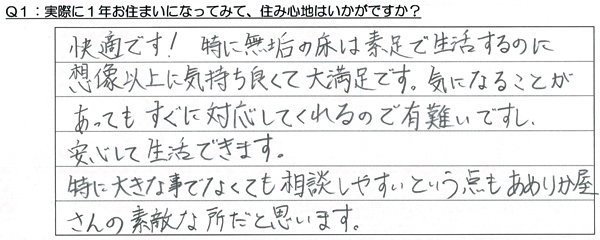 Q1:実際に1年お住まいになってみて、住み心地はいかがですか?
快適です! 特に無垢の床は素足で生活するのに
想像以上に気持ち良くて大満足です。気になることが
あってもすぐに対応してくれるので有難いですし、
安心して生活できます。
特に大きな事でなくても相談しやすいという点もあめりか屋
さんの素敵な所だと思います。